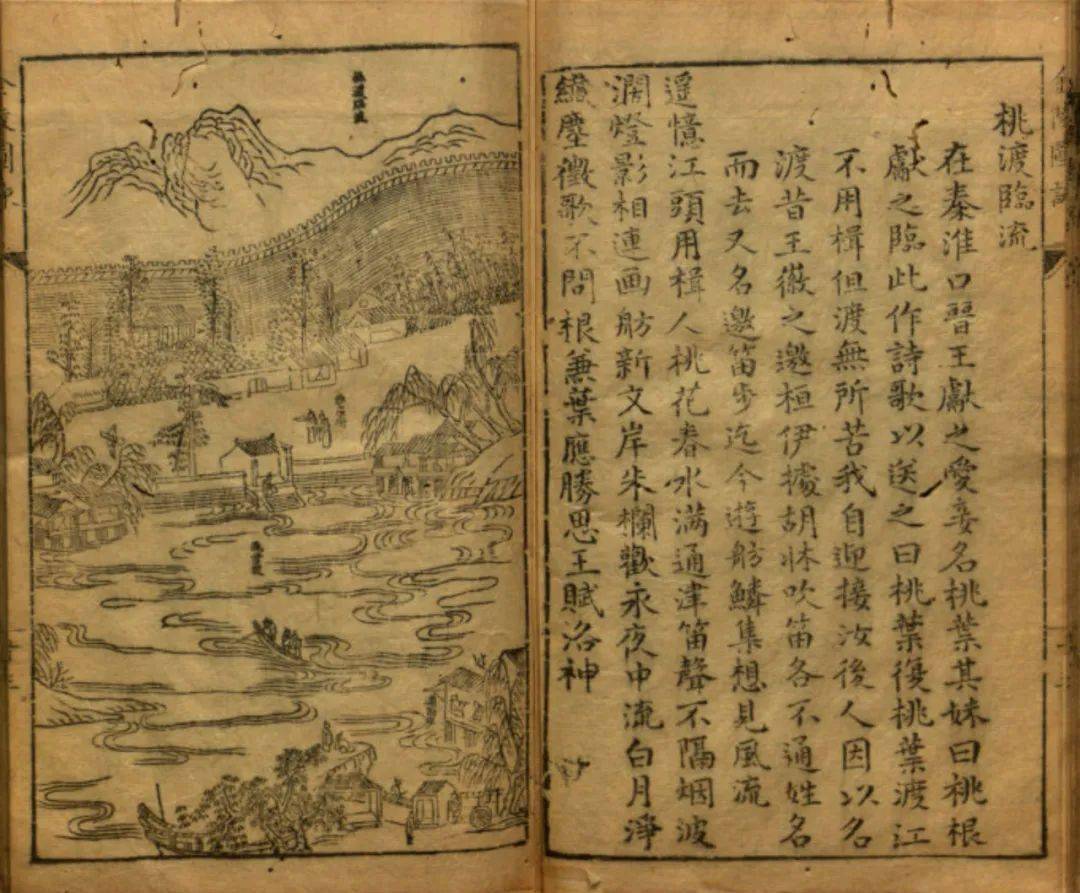 桃渡臨流
在秦淮口晉王獻之愛妾名桃葉其妹曰桃根
獻之臨此作詩歌以送之曰桃葉復桃葉渡江
不用楫但渡無所苦我自迎接汝後人因以名
渡昔王薇之邀桓伊據胡牀吹笛各不通姓名
而去又名邀笛步迄今遊舫鱗集想見風流
遥憶江頭用楫人桃花春水満通津笛聲不隔烟波
濶燈影相連画舫新文岸朱欄歡永夜中流白月淨
纖塵徵歌不問根兼葉應勝思王賦洛神
桃渡臨流